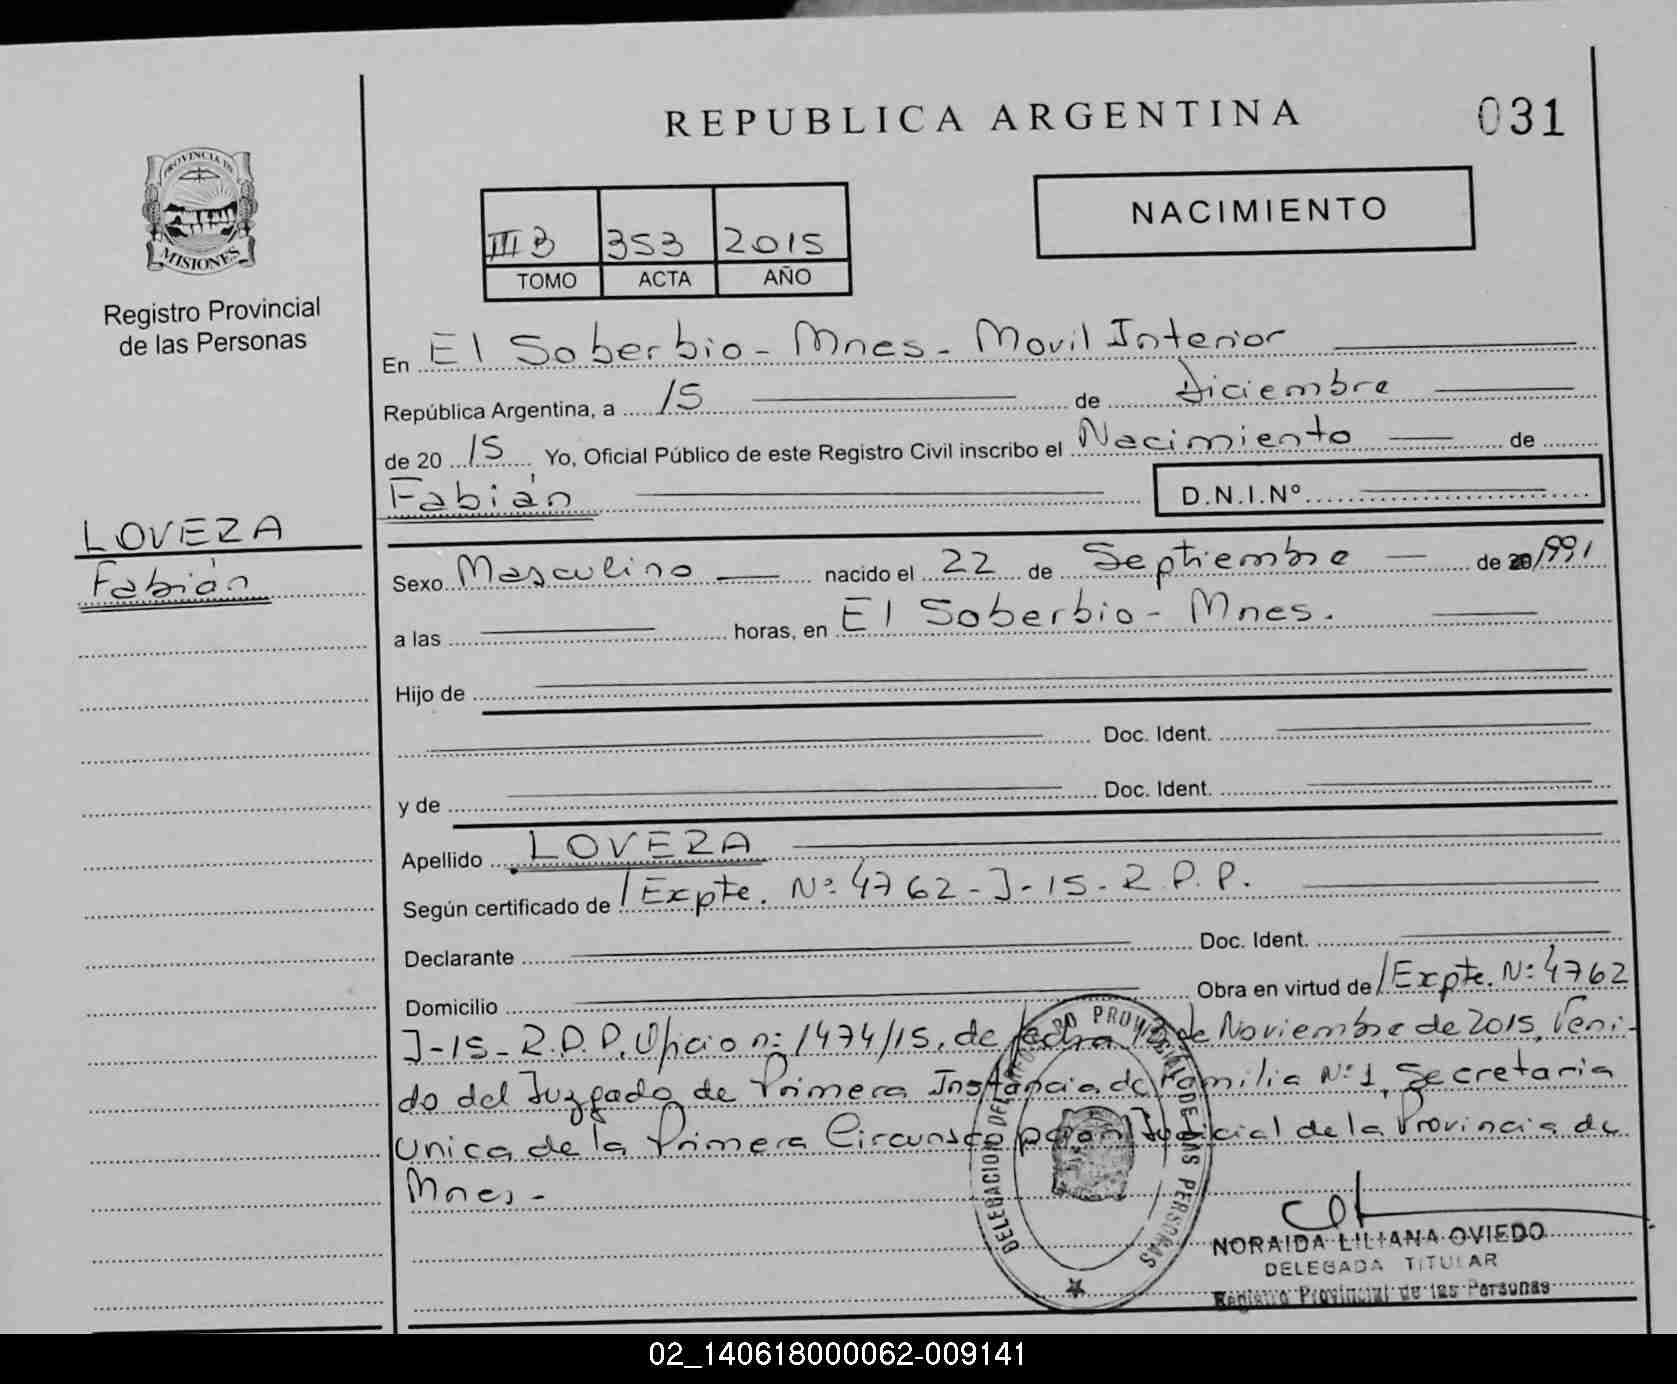 REPUBLICA ARGENTINA
031
PROVINCIA DE
MISIONES
Registro Provincial
de las Personas
NACIMIENTO
III B 353 2015
TOMO ACTA AÑO
En El Soberbio - Mnes - Movil Interior
República Argentina, a 15 de Diciembre
de 20 15 Yo, Oficial Público de este Registro Civil inscribo el Nacimiento de
Fabián D.N.I.Nº
LOVERA
Fabián
Sexo Masculino nacido el 22 de Septiembre de 20 1991
a las horas, en El Soberbio - Mnes.
Hijo de
Doc. Ident.
y de Doc. Ident.
Apellido LOVERA
Según certificado de /Expte. Nº 4762-J-15-R.P.P.
Declarante Doc. Ident.
Domicilio Obra en virtud de /Expte. Nº 4762
J-15-R.P.P. Oficio nº 1474/15, de fecha de Noviembre de 2015, Veni-
do del Juzgado de Primera Instancia de Familia Nº 1, Secretaria
Unica de la Primera Circunscripcion Judicial de la Provincia de
Mnes -
DELEGACION DEL REGISTRO PROVINCIAL DE LAS PERSONAS
NORAIDA LILIANA OVIEDO
DELEGADA TITULAR
Registro Provincial de las Personas
02_140618000062-009141